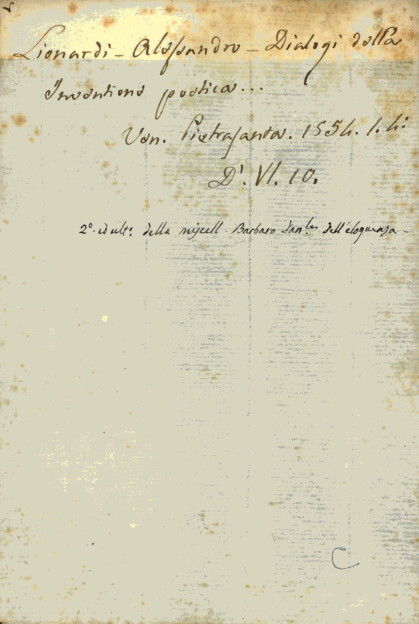 Lionardi - Alessandro - Dialogi della
Inventione poetica...
Ven. Pietrasanta. 1554. 1. 4:
D'. VI. 10.
2º. ed ult. della miscell. Barbaro Dan.les dell'eloquenza -